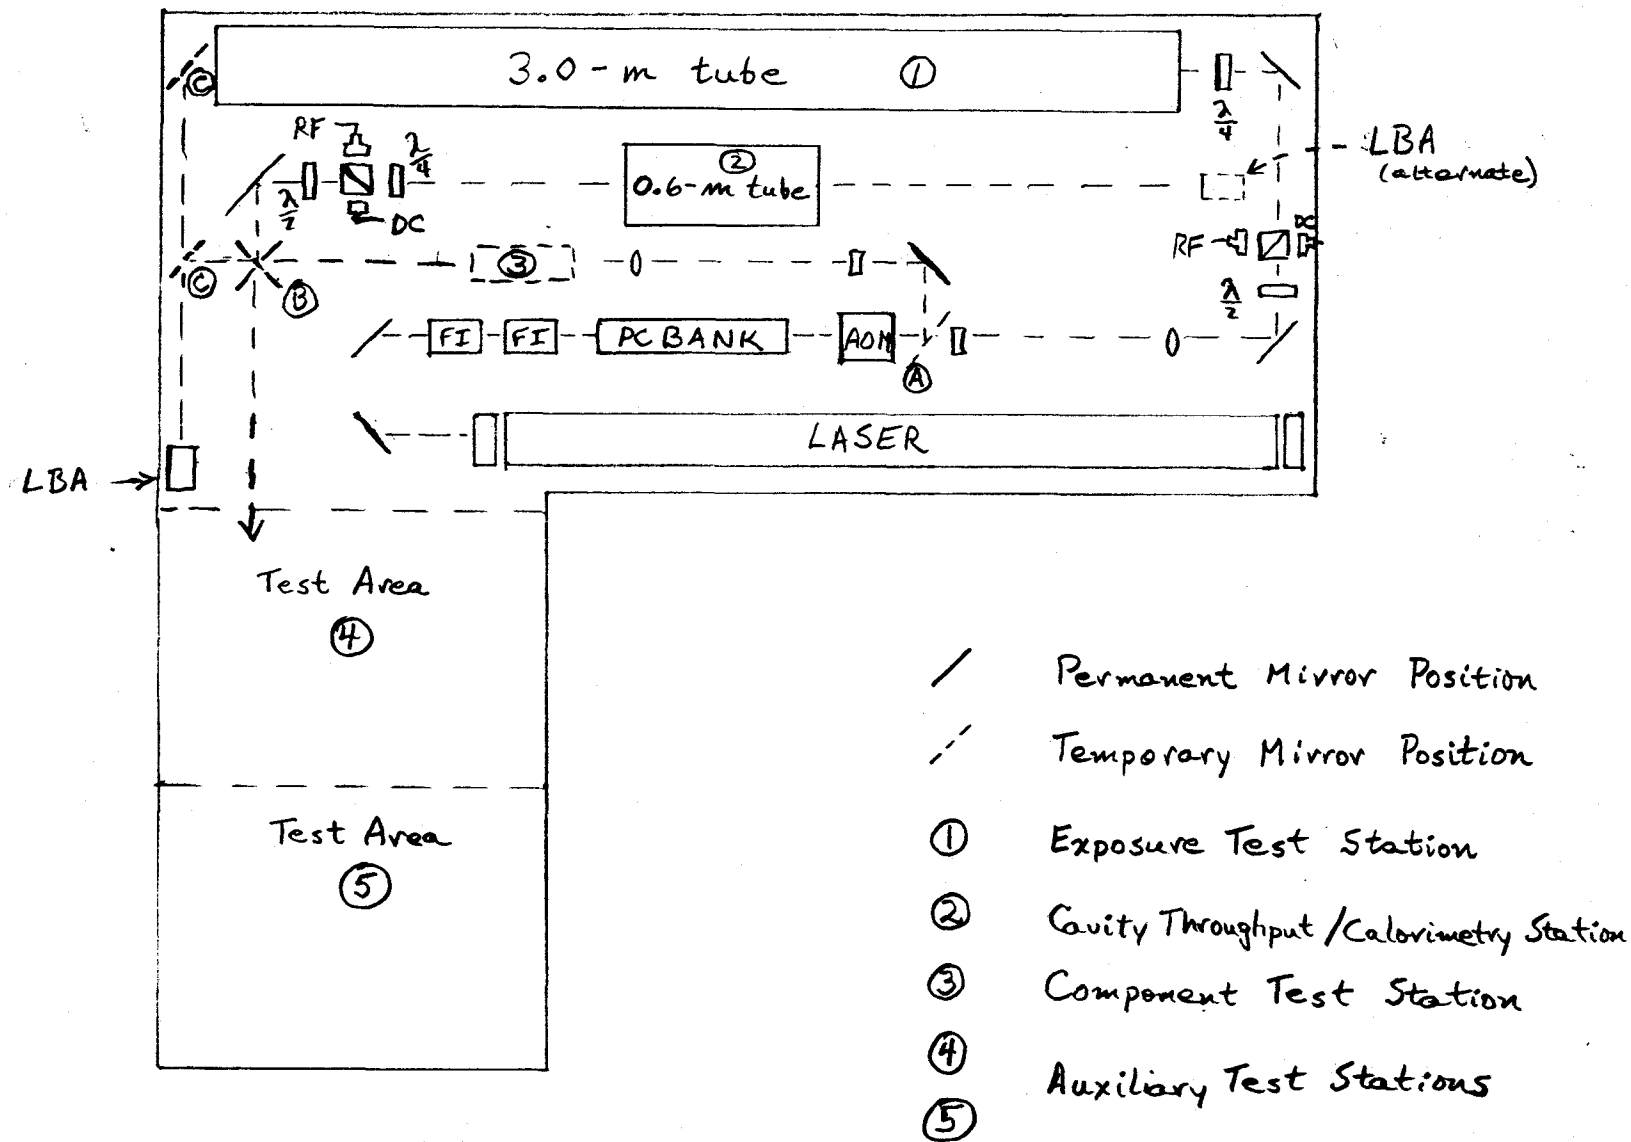 3.0-m tube ①
Ⓒ
λ/4
RF
λ/4
②
0.6-m tube
LBA
(alternate)
λ/2
DC
RF
DC
③
Ⓒ
Ⓑ
λ/2
FI FI PC BANK AOM
Ⓐ
LASER
LBA
Test Area
④
Test Area
⑤
Permanent Mirror Position
Temporary Mirror Position
① Exposure Test Station
② Cavity Throughput/Calorimetry Station
③ Component Test Station
④
Auxiliary Test Stations
⑤